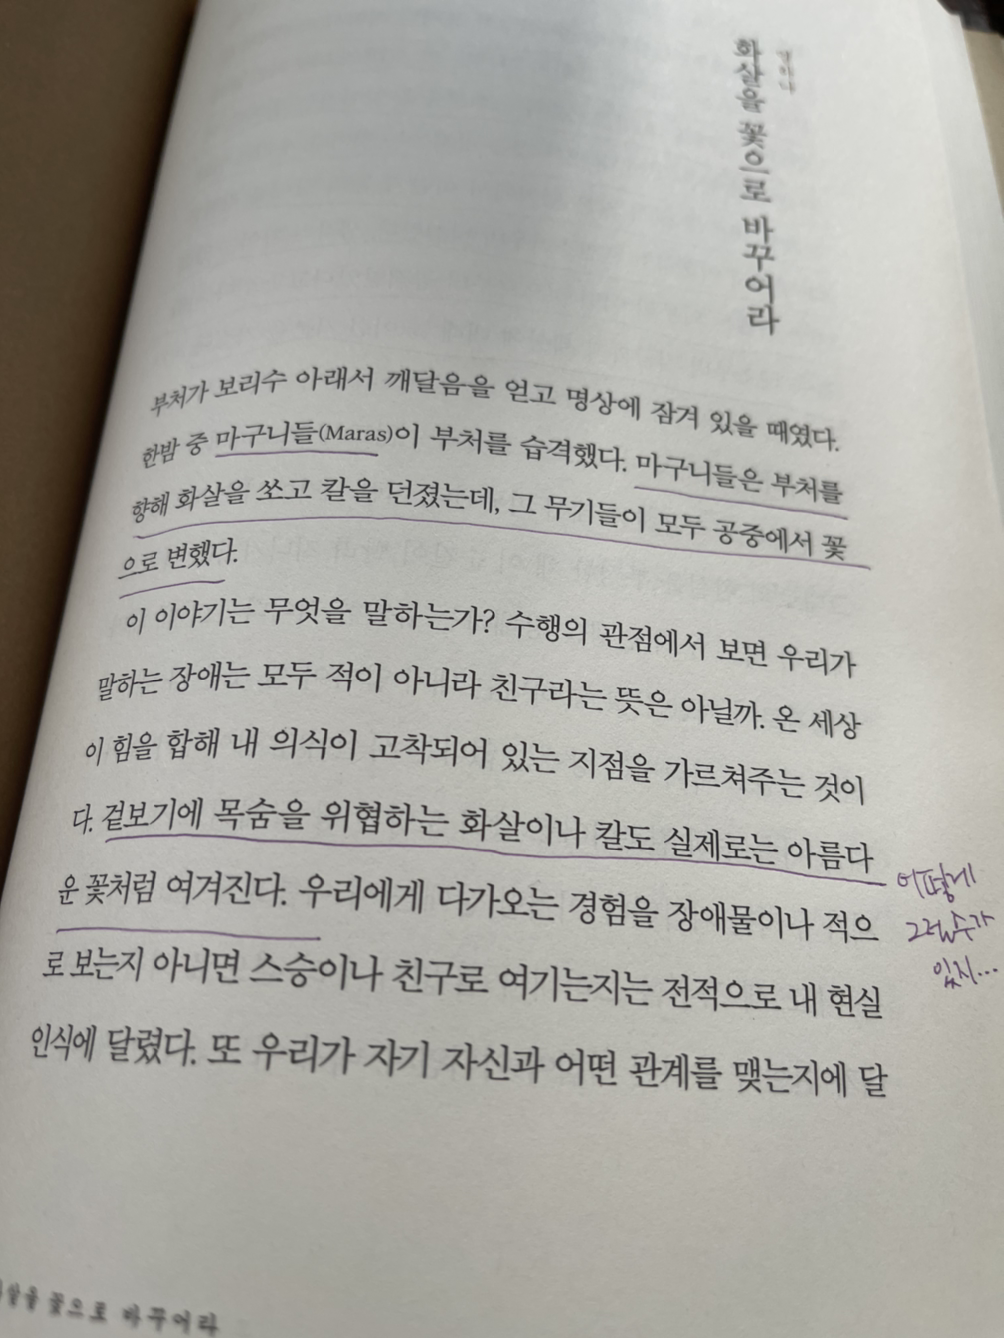 화살을 꽃으로 바꾸어라
부처가 보리수 아래서 깨달음을 얻고 명상에 잠겨 있을 때였다.
한밤 중 마구니들(Maras)이 부처를 습격했다. 마구니들은 부처를
향해 화살을 쏘고 칼을 던졌는데, 그 무기들이 모두 공중에서 꽃
으로 변했다.
이 이야기는 무엇을 말하는가? 수행의 관점에서 보면 우리가
말하는 장애는 모두 적이 아니라 친구라는 뜻은 아닐까. 온 세상
이 힘을 합해 내 의식이 고착되어 있는 지점을 가르쳐주는 것이
다. 겉보기에 목숨을 위협하는 화살이나 칼도 실제로는 아름다
운 꽃처럼 여겨진다. 우리에게 다가오는 경험을 장애물이나 적으
로 보는지 아니면 스승이나 친구로 여기는지는 전적으로 내 현실
인식에 달렸다. 또 우리가 자기 자신과 어떤 관계를 맺는지에 달
어떻게
그럴수가
있지...
화살을 꽃으로 바꾸어라